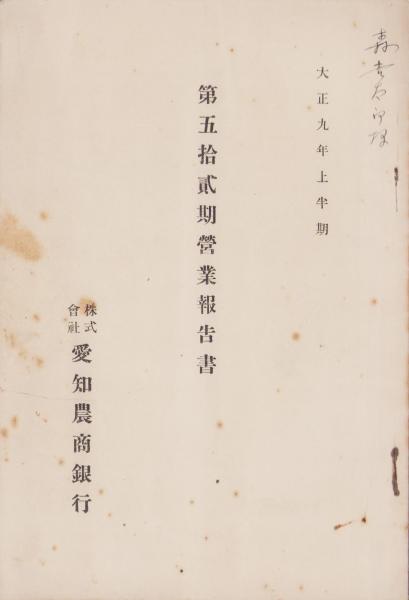 大正九年上半期
第五拾貳期營業報告書
株式會社愛知農商銀行